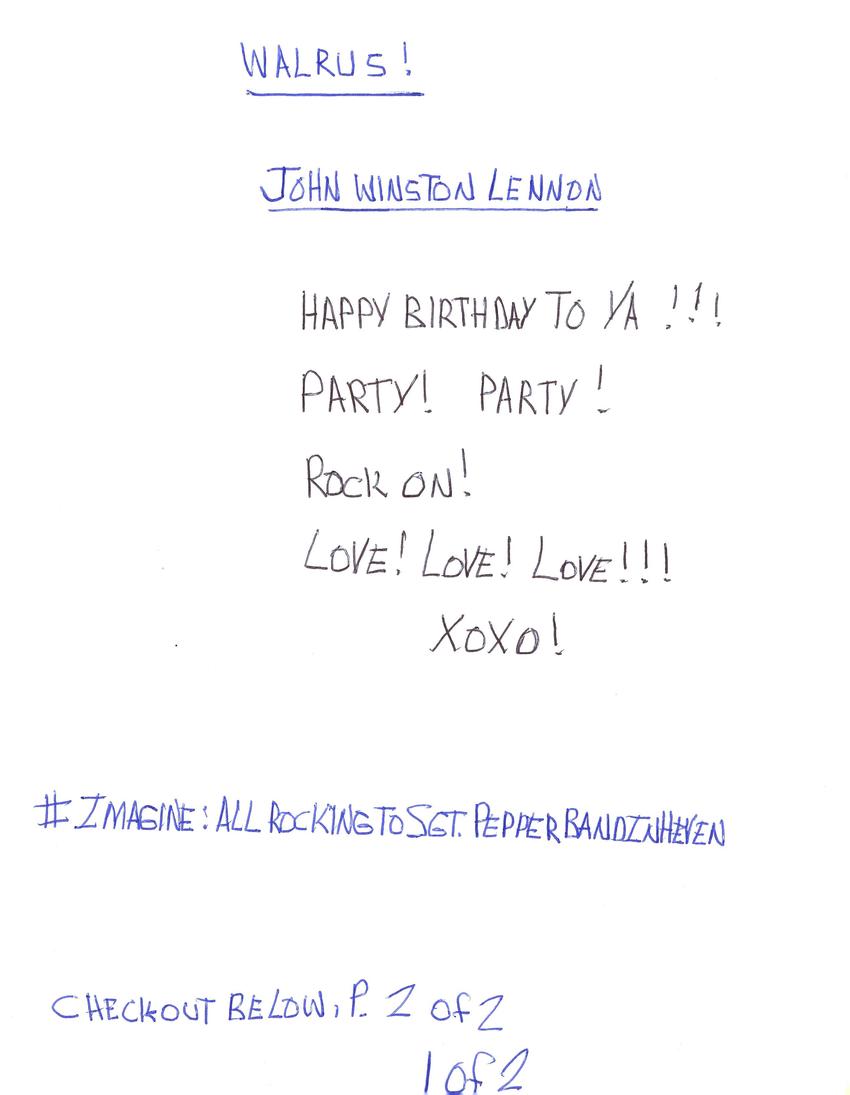 WALRUS!
JOHN WINSTON LENNON
HAPPY BIRTHDAY TO YA !!!
PARTY! PARTY!
ROCK ON!
LOVE! LOVE! LOVE!!!
XOXO!
#IMAGINE: ALL ROCKINGTOSGT. PEPPERBANDINHEVEN
CHECKOUT BELOW, P. 2 of 2
1 of 2